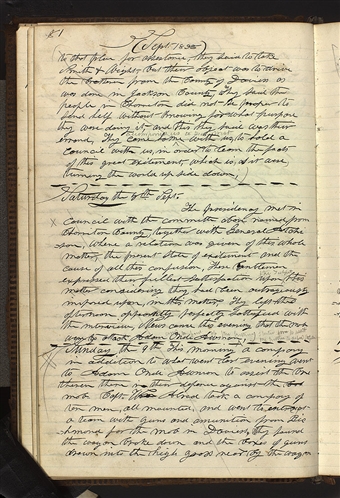 81
(Sept. 1838)
to that place for assistance, they said to take
Smith & Wight, but their object was to drive
the brethren from the County of Daviess as
was done in Jackson County, They said the
people in Chariton did not see proper to
send help without knowing for what purpose
they were doing it, and this they said was their
errand, They came home with us, to hold a
council with us, in order to learn the facts
of this great excitement, which is, as it were
turning the world up side down.
Saturday the 8th Sept.
The Presidency met in
Council with the committe above named, from
Chariton County, together with General Atchi-
son, Where a relation was given of this whole
matter, the present state of excitement and the
cause of all this confusion, These Gentlemen
expressed their fullest satisfaction upon this
matter considering they had been outrageously
imposed upon, in this matter, They left this
afternoon apparently perfectly satisfied with
the interview, News came this evening that the mob
were to attack Adam Ondi Awman,
Sunday the 9th This morning a company
in addition to what went last evening went
to Adam Ondi Awman to assist the bre-
theren there in their defence against the
mob Capt. Wm Alred took a company of
ten men, all mounted, and went to intercept
a team with guns and amunition from Rich-
mond for the mob in Daviess, They found
the wagon broke down and the boxes of guns
drawn into the high grass near by the wagon